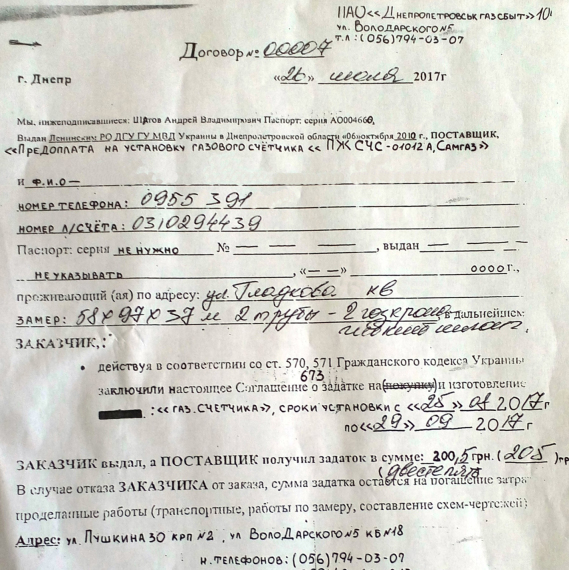 ПАО<<ДНЕПРОПЕТРОВСЬК ГАЗСБЫТ>> 10
ул. ВОЛОДАРСКОГО №5
Т.Л : (056)794-03-07
Договор № 00007
г. Днепр «26» июля 2017г
Мы, нижеподписавшиеся: Шагов Андрей Владимирович Паспорт: серия АО004660,
Выдан Ленинским РО ДГУ ГУ МВД Украины в Днепропетровской области «06»октября 2010 г., ПОСТАВЩИК,
<<ПРЕДОПЛАТА НА УСТАНОВКУ ГАЗОВОГО СЧЁТЧИКА << ПЖ СЧС -01012 А, САМГАЗ>>
и Ф.И.О —
НОМЕР ТЕЛЕФОНА: 0955 391
НОМЕР Л/СЧЁТА: 0310294439
Паспорт: серия НЕ НУЖНО № — — — —, выдан — — —
НЕ УКАЗЫВАТЬ, «— —» 0000г.,
проживающий (ая) по адресу: ул. Гладкова кв
ЗАМЕР: 58х97х37 м 2 трубы - 2 газ крана, в дальнейшем
ЗАКАЗЧИК,:
• действуя в соответствии со ст. 570, 571 Гражданского кодекса Украины
673
заключили настоящее Соглашение о задатке на (покупку) и изготовление
:<<ГАЗ.СЧЕТЧИКА>>, СРОКИ УСТАНОВКИ С <<25>> 08 2017г
ПО<<29>> 09 2017 г
ЗАКАЗЧИК выдал, а ПОСТАВЩИК получил задаток в сумме: 200,5 грн. (205) гр
(двести пять
В случае отказа ЗАКАЗЧИКА от заказа, сумма задатка остается на погашение затра
проделанные работы (транспортные, работы по замеру, составление схем-чертежей)
Адрес: ул. ПУШКИНА 30 КРП №2, ул ВОЛОДАРСКОГО №5 КБ№18
Н.ТЕЛЕФОНОВ: (056)794-03-07